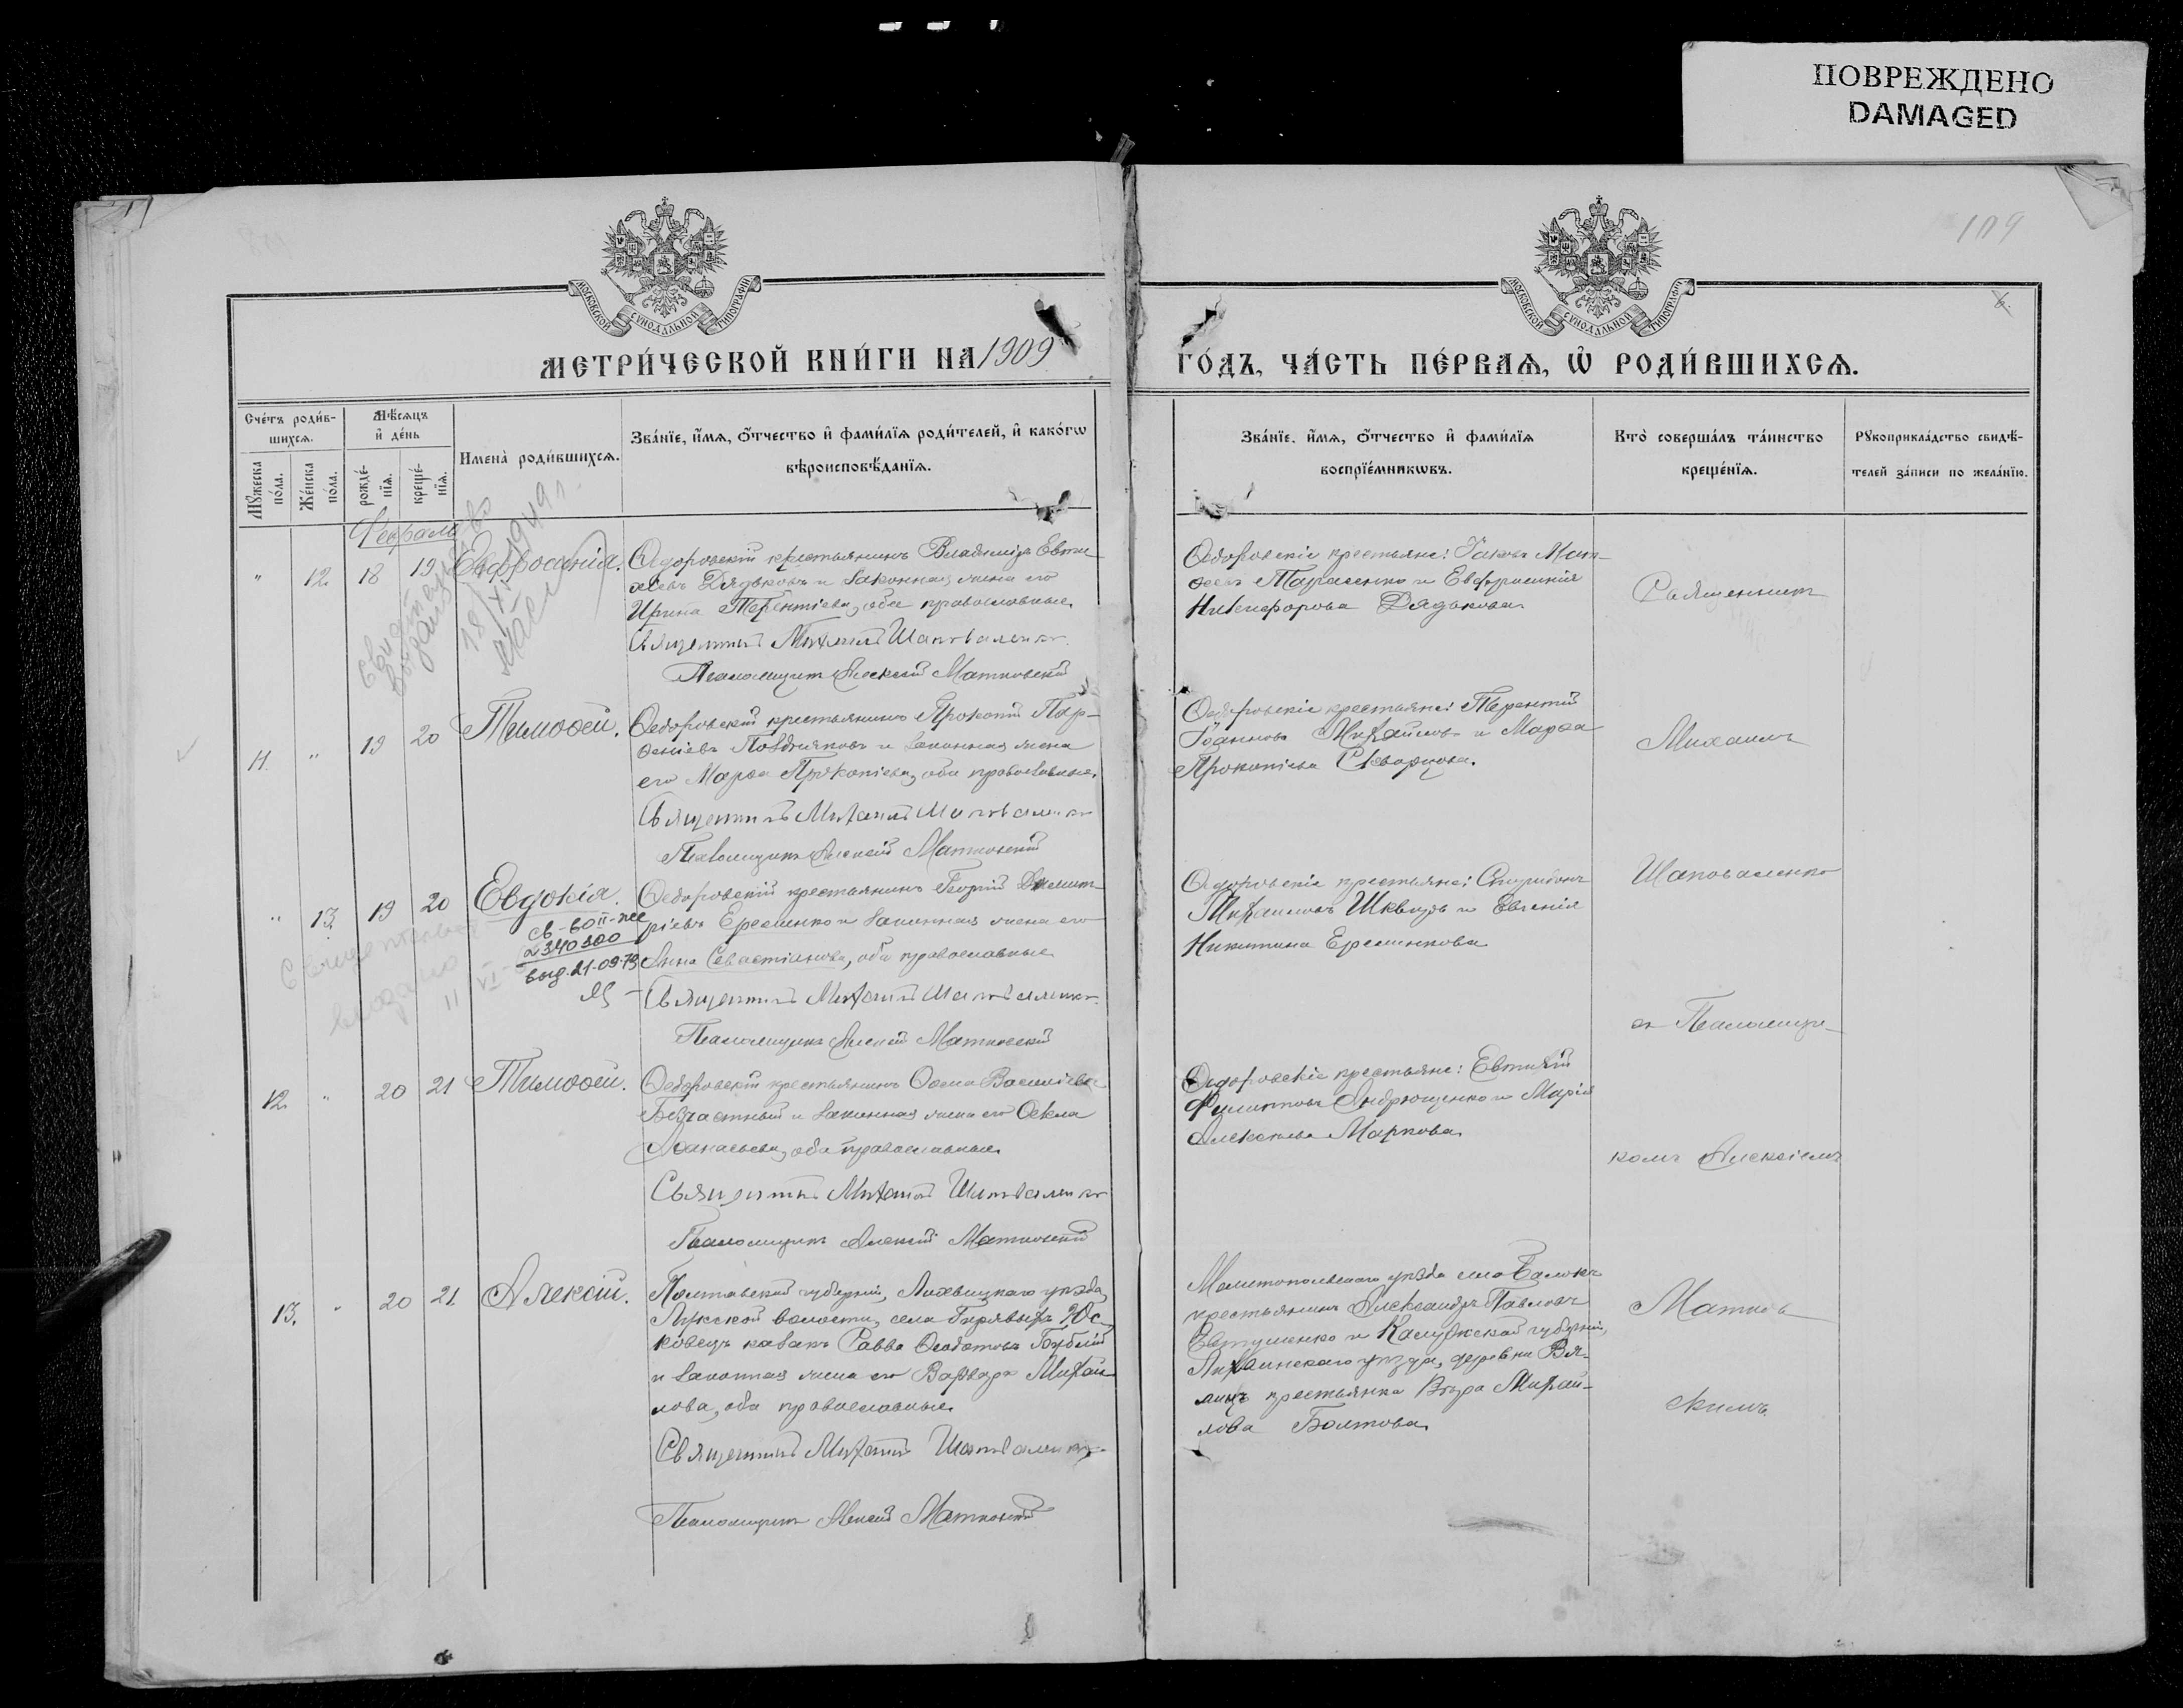 ПОВРЕЖДЕНО
DAMAGED
109
МОСКОВСКОЙ СѴНОДАЛЬНОЙ ТИПОГРАФІИ
МОСКОВСКОЙ СѴНОДАЛЬНОЙ ТИПОГРАФІИ
МЕТРИ́ЧЕСКОЙ КНИ́ГИ НА 1909
ГО́ДЪ, ЧА́СТЬ ПЕ́РВАѦ, Ѡ҆ РОДИ́ВШИХСѦ.
Сче́тъ роди́в-
шихсѧ.
Мꙋ́жеска по́ла.
Же́нска по́ла.
Мѣ́сѧцъ
и҆ де́нь
рожде́-
нїѧ.
креще́-
нїѧ.
Имена̀ роди́вшихсѧ.
Зва́нїе, и҆́мѧ, ѻ҆́тчество и҆ фами́лїѧ роди́телей, и҆ како́гѡ
вѣроисповѣ́данїѧ.
Зва́нїе, и҆́мѧ, ѻ҆́тчество и҆ фами́лїѧ
воспрїе́мникѡвъ.
Кто̀ соверша́лъ та́инство
креще́нїѧ.
Рꙋкоприкла́дство свидѣ́-
телей за́писи по жела́нїю.
Февраль
" 12. 18 19 Евфросинія.
Ѳедоровскій крестьянинъ Владиміръ Евти-
хіевъ Дядьковъ и законная жена его
Ирина Терентіева, оба православные.
Священникъ Михаилъ Шаповаленко
Псаломщикъ Алексій Матковскій
Ѳедоровскіе крестьяне: Іаковъ Мат-
ѳеевъ Тарасенко и Евфросинія
Никифорова Дядькова.
Священникъ
11. " 19 20 Тимоѳей.
Ѳедоровскій крестьянинъ Прокопій Пар-
ѳеніевъ Поздняковъ и законная жена
его Марѳа Прокопіева, оба православные.
Священникъ Михаилъ Шаповаленко
Псаломщикъ Алексій Матковскій
Ѳедоровскіе крестьяне: Терентій
Іоанновъ Михайловъ и Марѳа
Прокопіева Скворцова.
Михаилъ
" 13. 19 20 Евдокія.
св-во II-
2340300
выд. 21.09.73
Ѳедоровскій крестьянинъ Георгій Димит-
ріевъ Еременко и законная жена его
Анна Севастіанова, оба православные
Священникъ Михаилъ Шаповаленко
Псаломщикъ Алексій Матковскій
Ѳедоровскіе крестьяне: Спиридонъ
Михаиловъ Шквыръ и Евгенія
Никитина Еременкова
Шаповаленко
съ Псаломщи-
12. " 20 21 Тимоѳей.
Ѳедоровскій крестьянинъ Ѳома Василіевъ
Безчастный и законная жена его Ѳекла
Аѳанасьева, оба православные.
Священникъ Михаилъ Шаповаленко
Псаломщикъ Алексій Матковскій
Ѳедоровскіе крестьяне: Евтихій
Филиповъ Андрющенко и Марія
Алексіева Маркова.
комъ Алексіемъ
13. " 20 21 Алексій.
Полтавской губерніи, Лохвицкаго уѣзда,
волости, села
козакъ Савва Ѳеодотовъ
и законная жена его Варвара Михай-
лова, оба православные.
Священникъ Михаилъ Шаповаленко
Псаломщикъ Алексій Матковскій
Мелитопольскаго уѣзда села Балокъ
крестьянинъ Александръ Павловъ
Евтушенко и Калужской губерніи,
Лихвинскаго уѣзда, деревни Вя-
крестьянка Вѣра Михай-
лова Болтова.
Матков-
скимъ.